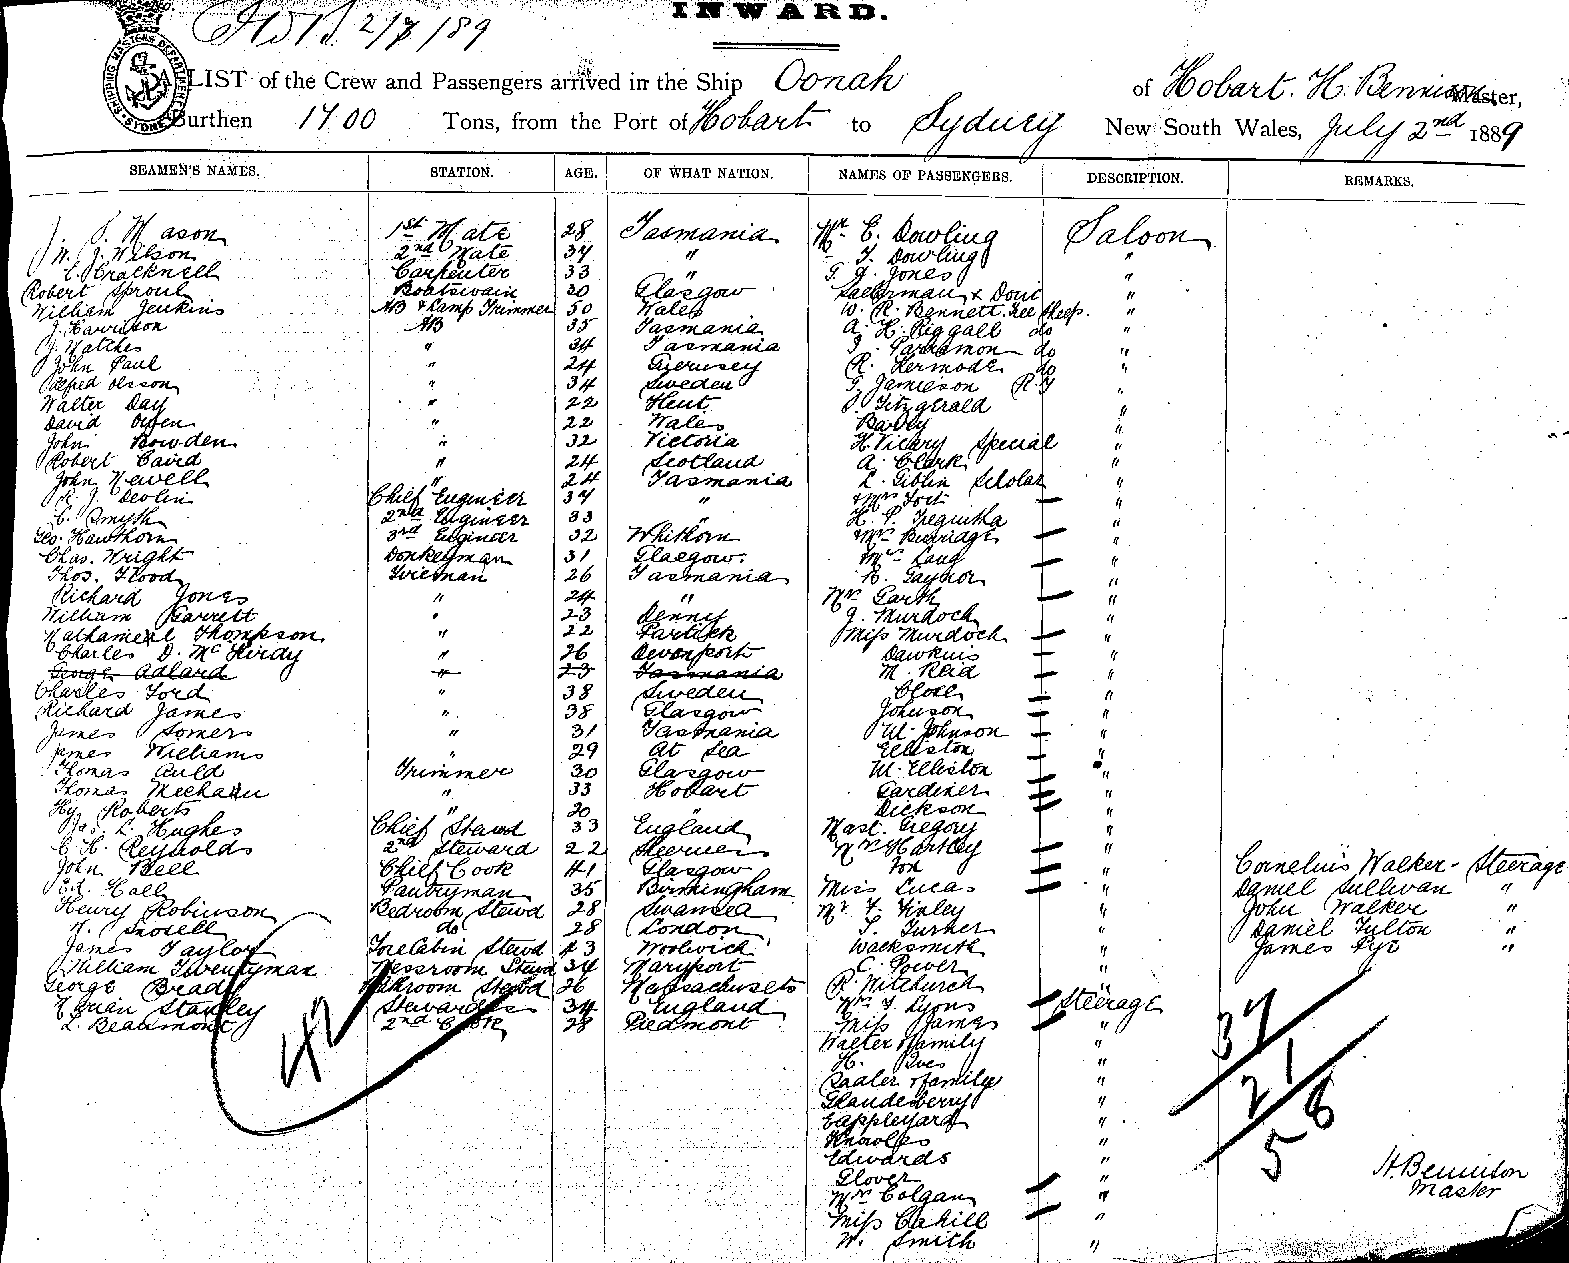 2/7/89
INWARD.
SHIPPING MASTERS DEPARTMENT
A LIST of the Crew and Passengers arrived in the Ship Oonah of Hobart. H. Bennison Master,
Burthen 1700 Tons, from the Port of Hobart to Sydney New South Wales, July 2nd 1889
SEAMEN'S NAMES. STATION. AGE. OF WHAT NATION. NAMES OF PASSENGERS. DESCRIPTION. REMARKS.
Mason 1st Mate 28 Tasmania Mr E. Dowling Saloon
W. J. Wilson 2nd Mate 34 " Dowling "
C. Cracknell Carpenter 33 " Jones "
Robert Sproul Boatswain 30 Glasgow "
William Jenkins AB & Lamp Trimmer 50 Wales W. R. Bennett. Free Sheep. "
J. Harrison AB 35 Tasmania A. H. Riggall do "
J. Natches " 34 Tasmania do "
John Paul " 24 Guernsey R. Kermode do "
Alfred Olsson " 34 Sweden Jamieson "
Walter Day " 22 Kent Fitzgerald "
David Owen " 22 Wales "
John Bowden " 32 Victoria H. Vicary Special "
Robert Baird " 24 Scotland A. Clark "
John Newell " 24 Tasmania L. Giblin Scholar "
R. J. Devlin Chief Engineer 34 " "
C. Smyth 2nd Engineer 33 " H. P. Tregurtha "
Geo. Hawthorn 3rd Engineer 32 Whithorn Mrs Burridge "
Chas. Wright Donkeyman 31 Glasgow. Mrs "
Thos. Flood Fireman 26 Tasmania Gaynor "
Richard Jones " 24 " Mrs Garth "
William Garrett " 23 Denny J. Murdoch "
Nathaneil Thompson " 22 Partick Miss Murdoch "
Charles D. McHirdy " 26 Devonport Dawkins "
George Adlard " 23 Tasmania M. Reid "
Charles Ford " 38 Sweden Close "
Richard James " 38 Glasgow Johnson "
James Somers " 31 Tasmania M. Johnson "
James Williams " 29 At Sea Elliston "
Thomas Auld Trimmer 30 Glasgow M. Elliston "
Thomas Meehan " 33 Hobart Gardiner "
Hy. Roberts " 20 " Dickson "
Jas. L. Hughes Chief Stewd 33 England Mast. Gregory "
C. H. Reynolds 2nd Steward 22 Sheerness Mrs Hartley "
John Bell Chief Cook 41 Glasgow Fox " Cornelius Walker - Steerage
Ed. Hall Pantryman 35 Birmingham Miss Lucas " Daniel Sullivan "
Henry Robinson Bedroom Stewd 28 Swansea Mr F. Finley " John Walker "
Snodell do 28 London Turner " Daniel Fulton "
James Taylor ForeCabin Stewd 43 Woolwich Wacksmith " James Pye "
William Twentyman Messroom Stewd 34 Maryport C. Power "
George Brady Stewd 26 Massachusets R. Mitchurch "
Stanley Stewardess 34 England Mrs F. Lyons Steerage
L. Beaumont 2nd Cook 28 Piedmont Miss James "
Walter & family "
H. Ives "
Sadler & family "
Glaudesberry "
Eappleyard "
Knowles "
Edwards "
Glover "
Mrs Colgan "
Miss Cahill "
W. Smith "
42
37
21
58
H. Bennison
Master